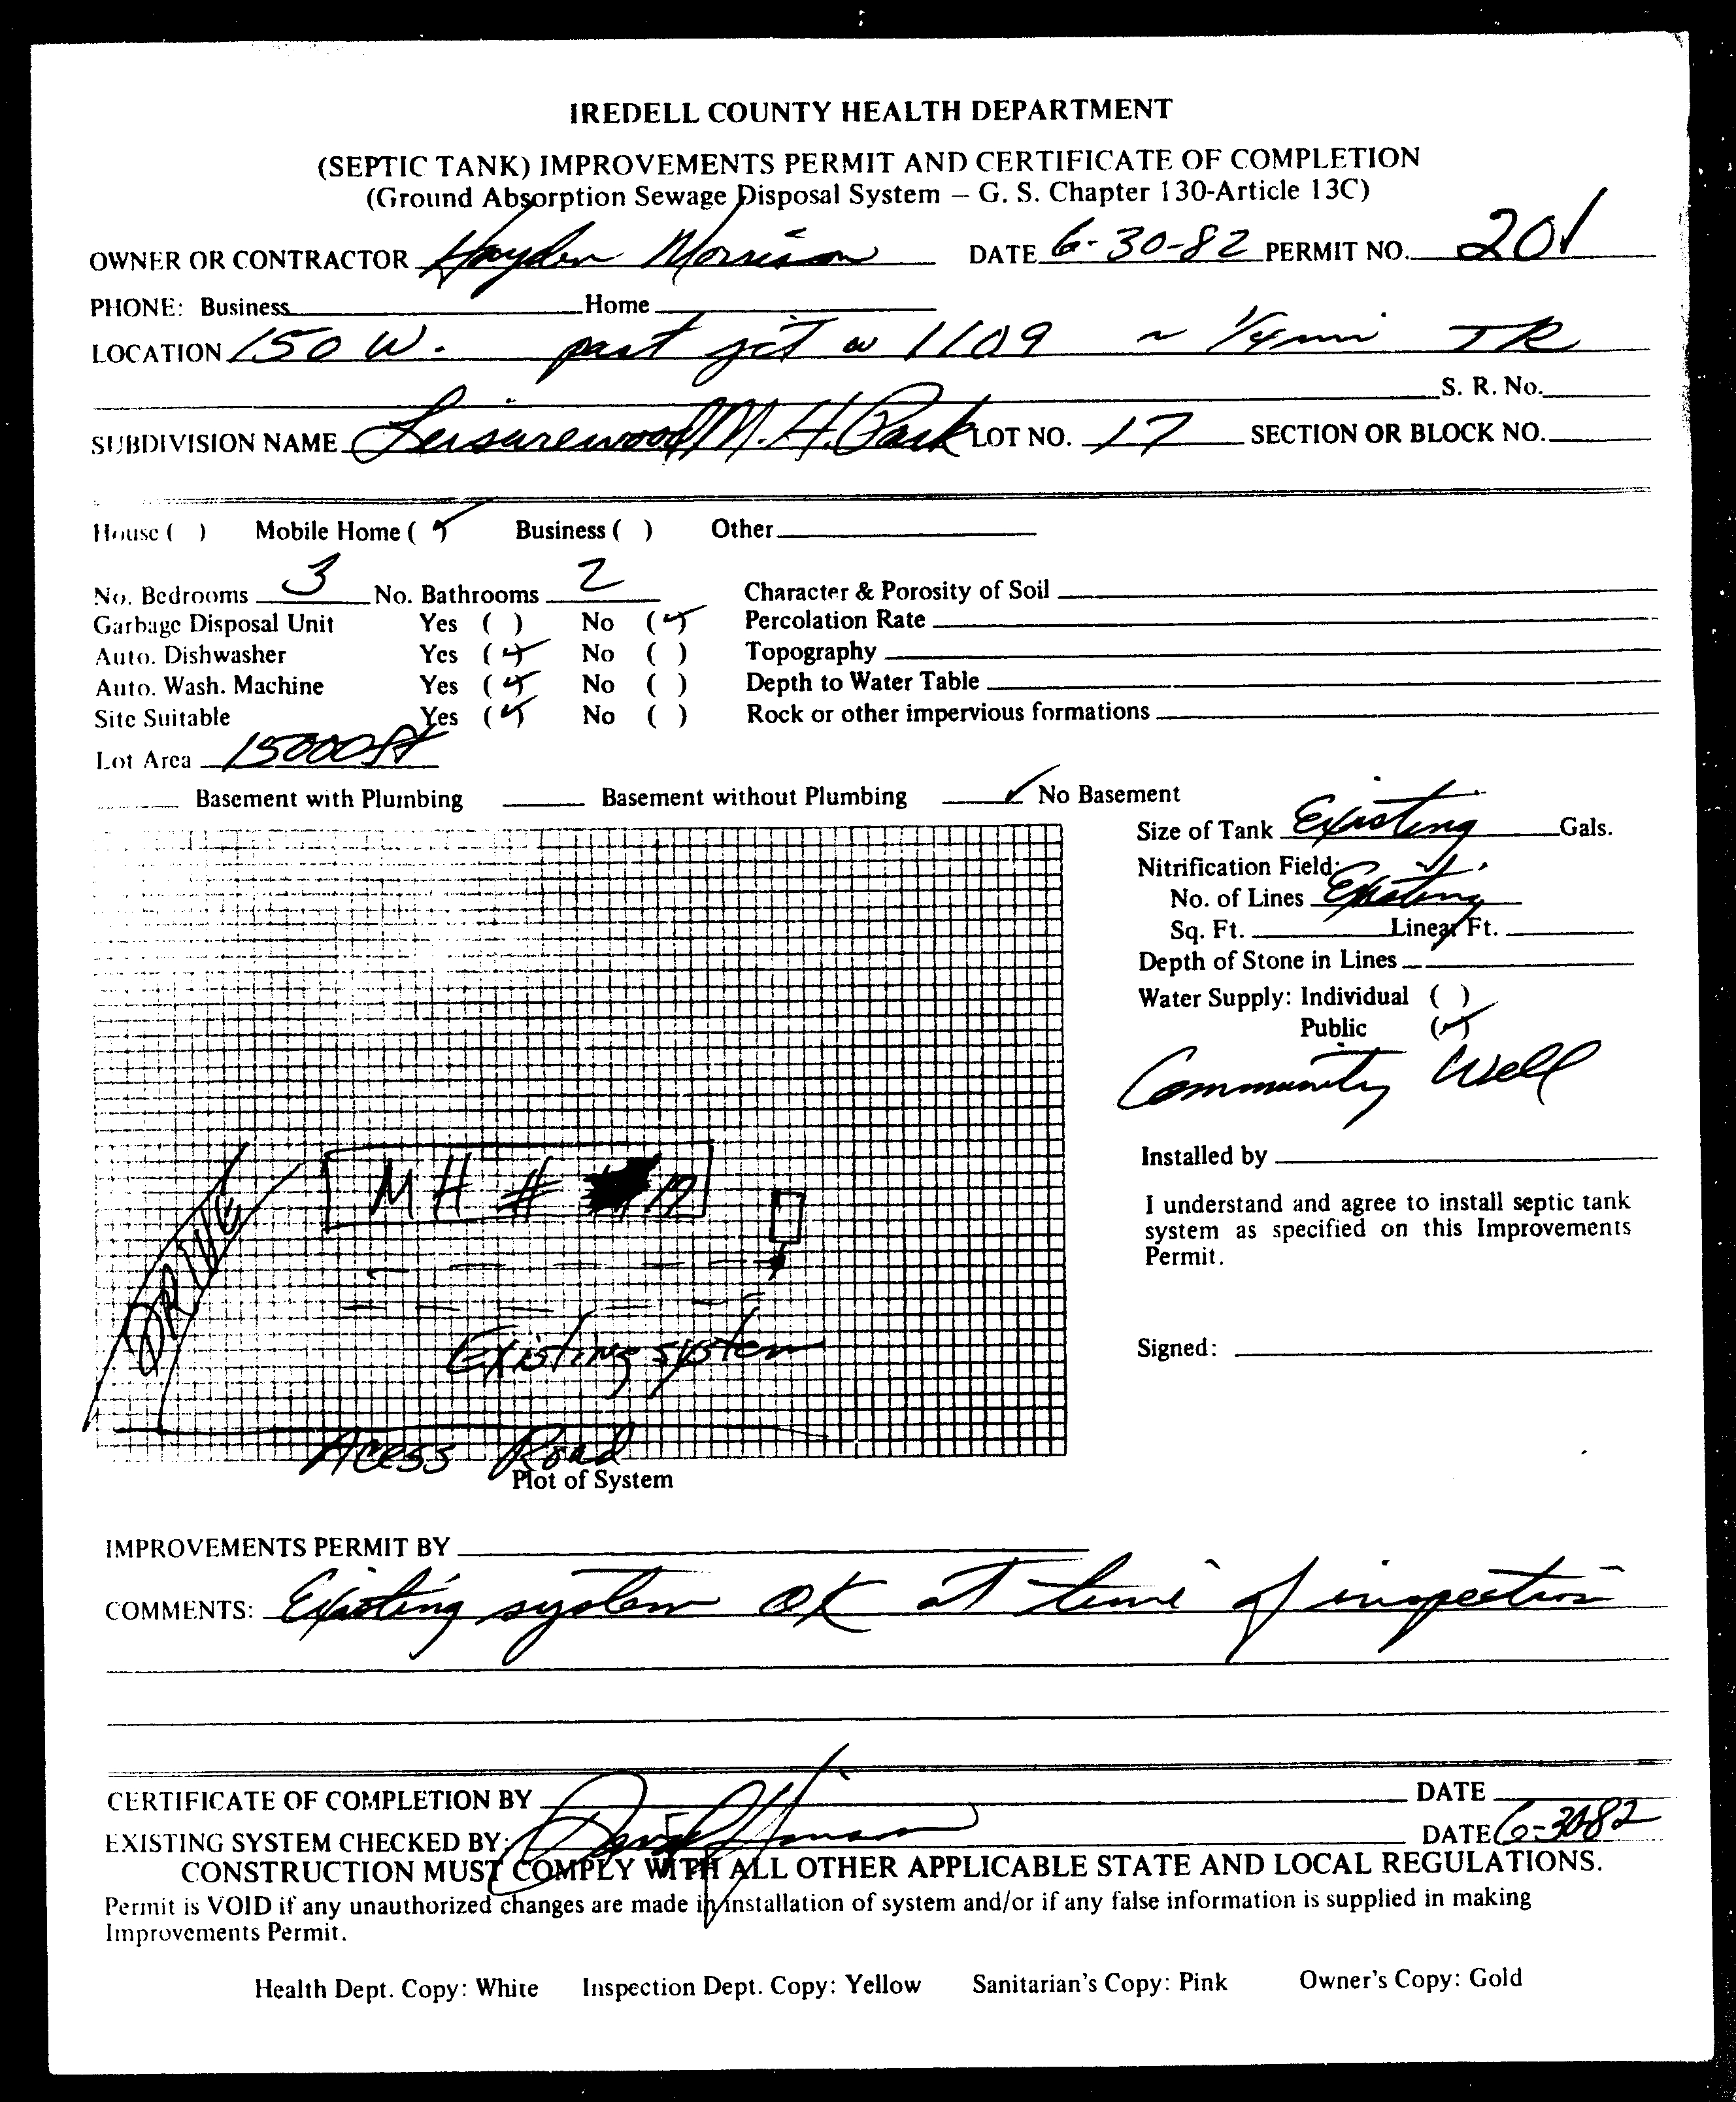 IREDELL COUNTY HEALTH DEPARTMENT
(SEPTIC TANK) IMPROVEMENTS PERMIT AND CERTIFICATE OF COMPLETION
(Ground Absorption Sewage Disposal System – G. S. Chapter 130-Article 13C)
OWNER OR CONTRACTOR Hayden Morrison DATE 6-30-82 PERMIT NO. 201
PHONE: Business Home
LOCATION 150 W. past jct w 1109 ~ 1/4 mi TR
S. R. No.
SUBDIVISION NAME Leisurewood M.H. Park LOT NO. 17 SECTION OR BLOCK NO.
House ( ) Mobile Home (✓) Business ( ) Other
No. Bedrooms 3 No. Bathrooms 2 Character & Porosity of Soil
Garbage Disposal Unit Yes ( ) No (✓) Percolation Rate
Auto. Dishwasher Yes (✓) No ( ) Topography
Auto. Wash. Machine Yes (✓) No ( ) Depth to Water Table
Site Suitable Yes (✓) No ( ) Rock or other impervious formations
Lot Area 15000 ft
Basement with Plumbing Basement without Plumbing ✓ No Basement
Size of Tank Existing Gals.
Nitrification Field:
No. of Lines Existing
Sq. Ft. Linear Ft.
Depth of Stone in Lines
Water Supply: Individual ( )
Public (✓)
Community Well
Installed by
I understand and agree to install septic tank
system as specified on this Improvements
Permit.
Signed:
MH # 17
DRIVE
Existing system
Acess Road
Plot of System
IMPROVEMENTS PERMIT BY
COMMENTS: Existing system OK at time of inspection
CERTIFICATE OF COMPLETION BY DATE
EXISTING SYSTEM CHECKED BY: David DATE 6-30-82
CONSTRUCTION MUST COMPLY WITH ALL OTHER APPLICABLE STATE AND LOCAL REGULATIONS.
Permit is VOID if any unauthorized changes are made in installation of system and/or if any false information is supplied in making
Improvements Permit.
Health Dept. Copy: White Inspection Dept. Copy: Yellow Sanitarian's Copy: Pink Owner's Copy: Gold